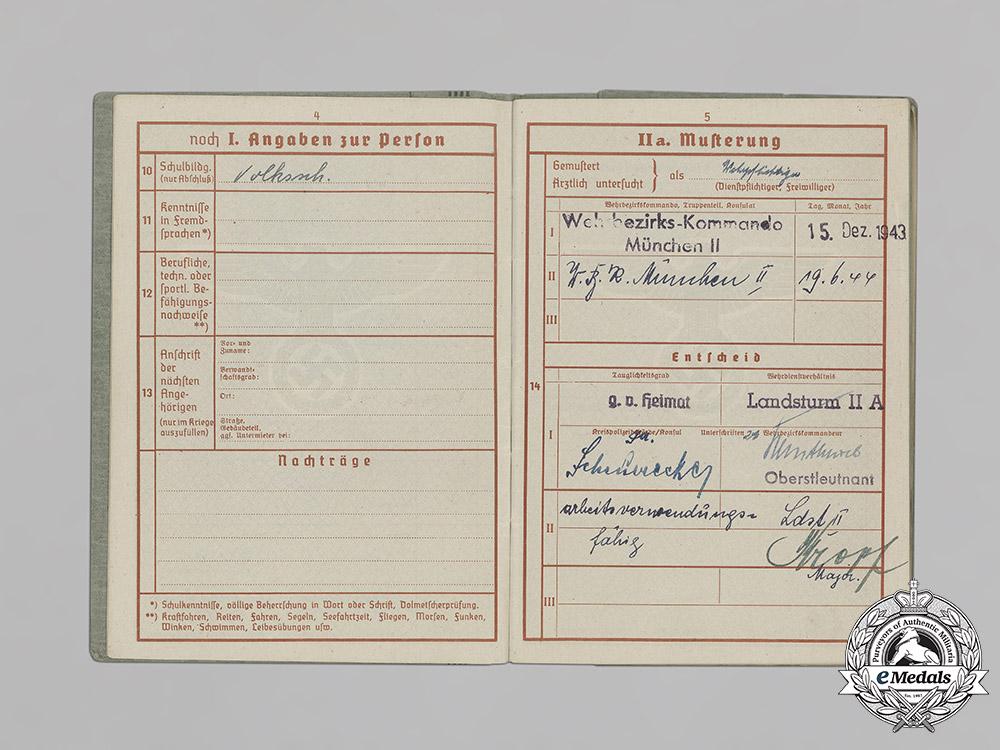 4
noch I. Angaben zur Person
10 Schulbildg. (nur Abschluß)
Volkssch.
11 Kenntnisse in Fremd-
sprachen*)
12 Berufliche,
techn. oder
sportl. Be-
fähigungs-
nachweise
**)
13 Anschrift
der
nächsten
Ange-
hörigen
(nur im Kriege
auszufüllen)
Vor- und
Zuname:
Verwandt-
schaftsgrad:
Ort:
Straße,
Gebäudeteil,
ggf. Untermieter bei:
Nachträge
*) Schulkenntnisse, völlige Beherrschung in Wort oder Schrift, Dolmetscherprüfung.
**) Kraftfahren, Reiten, Fahren, Segeln, Seefahrtzeit, Fliegen, Morsen, Funken,
Winken, Schwimmen, Leibesübungen usw.
5
IIa. Musterung
Gemustert
Ärztlich untersucht } als Wehrpflichtiger
(Dienstpflichtiger, Freiwilliger)
Wehrbezirkskommando, Truppenteil, Konsulat Tag, Monat, Jahr
I Wehrbezirks-Kommando
München II 15. Dez. 1943
II W.B.K. München II 19.6.44
III
Entscheid
14
Tauglichkeitsgrad Wehrdienstverhältnis
g. v. Heimat Landsturm II A
I Kreispolizeibehörde/Konsul Unterschriften Wehrbezirkskommandeur
Oberstleutnant
II arbeitsverwendungs-
fähig
Ldst II
Major.
III
Purveyors of Authentic Militaria
eMedals